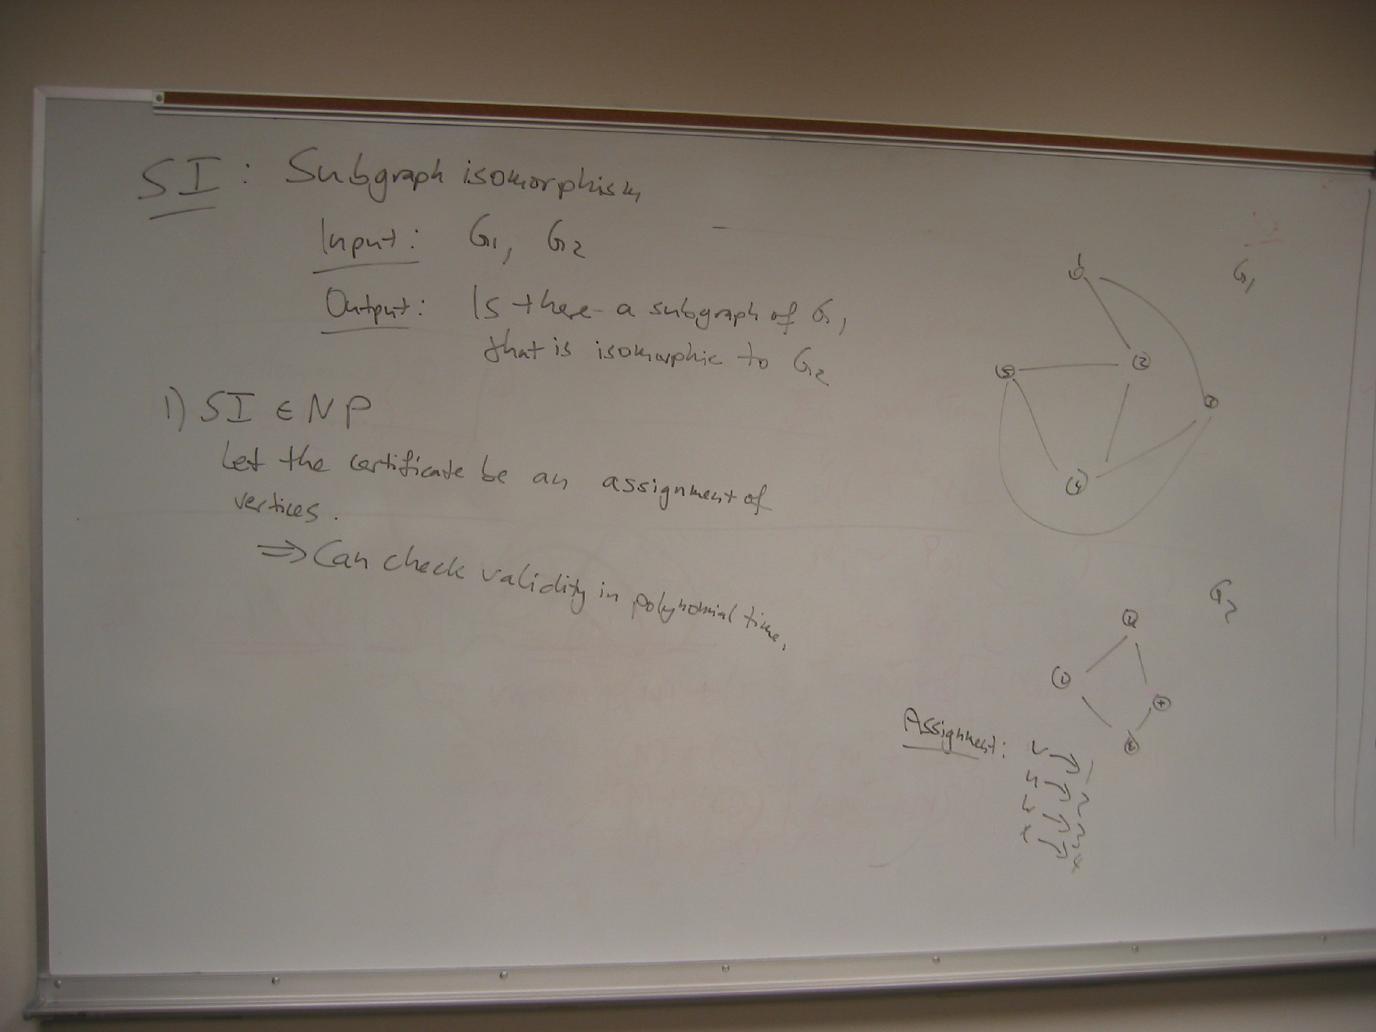 SI: Subgraph isomorphism
Input: G1, G2
Output: Is there a subgraph of G1
that is isomorphic to G2
1) SI ∈ NP
Let the certificate be an assignment of
vertices.
⇒ Can check validity in polynomial time.
G1
1
2
5
3
4
G2
u
v
x
Assignment: v → 1
u → 2
→ 3
x → 4